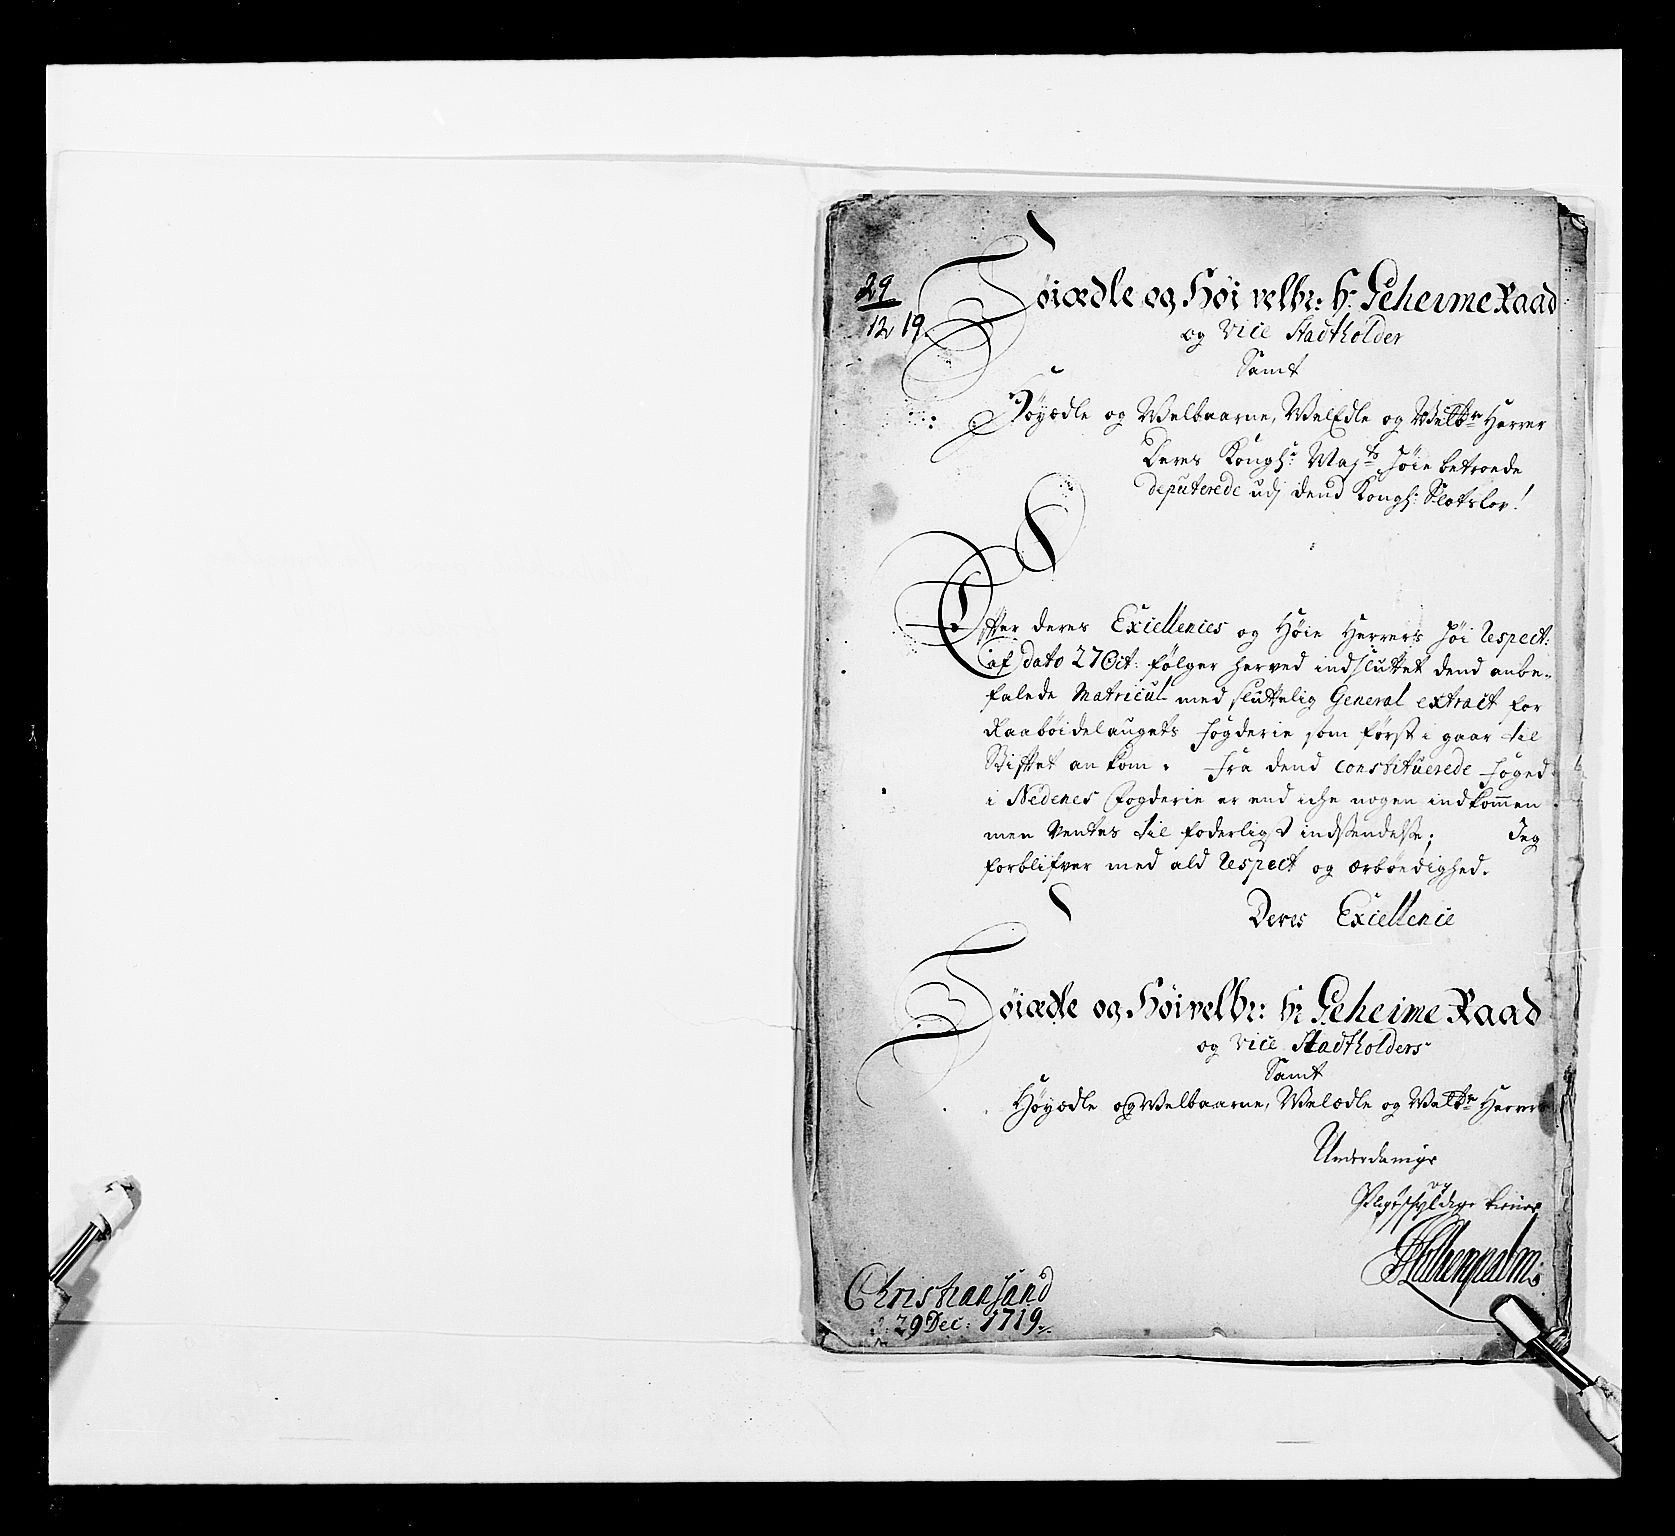 29
12 19
Høiædle og Høi velbr: hr Geheime Raad
og Vice Stadtholder
Samt
Høyædle og Welbaarne, WelEdle og Welbrne Herrer
Deres Kongl: Mayts Høie betroede
deputerede udj dend Kongl: Slotslov!
Efter deres Excellences og Høie Herrers Høi Respect:
af dato 27 8it: følger herved indsluttet dend anbe-
falede Matricul med sluttelig General extract for
Raabøidelaugets fogderie som først i gaar til
Stiftet ankom. Fra dend constituerede foged
i Nedenes Fogderie er end iche nogen indkommen
men Ventes til foderligst indsendelse; Jeg
forblifver med ald Respect og ærbødighed.
Deres Excellence
Høiædle og Høivelbr: hr Geheime Raad
og Vice Stadtholders
Samt
Høyædle og Welbaarne, Welædle og Welbrne Herrers
Underdanige
og
Pligtskyldige tiener
Stockenpalm
Christiansand
d. 29 Dec: 1719.